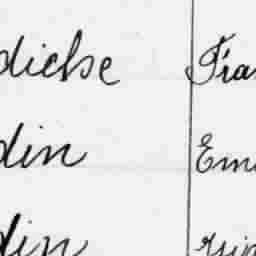 dickse Fra
din Em
din